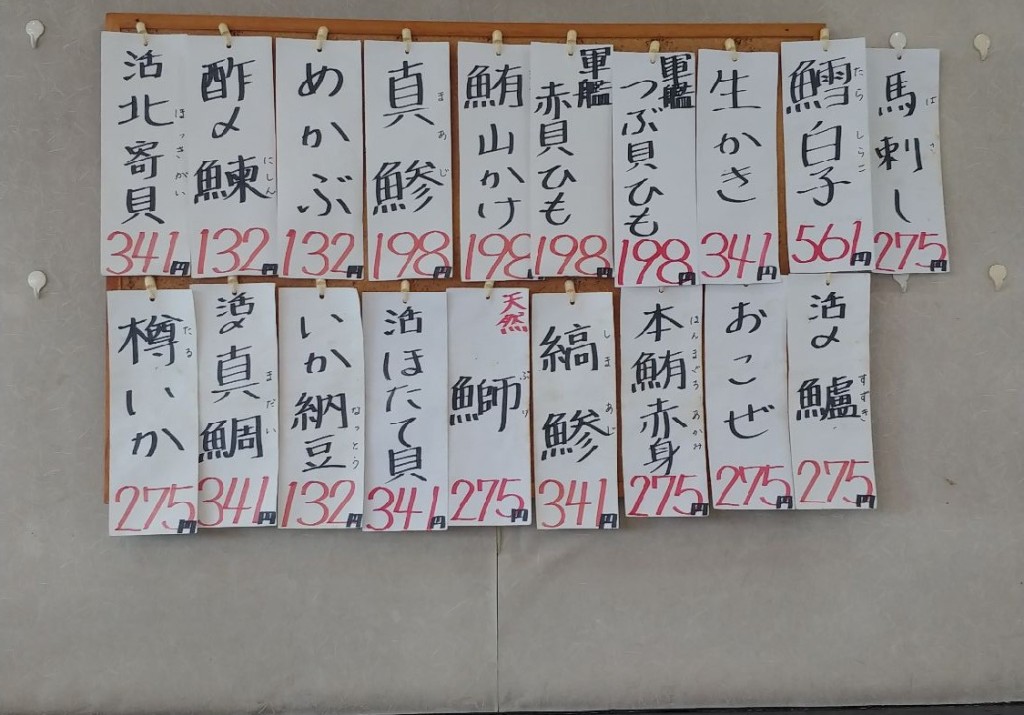 馬刺し
ばさ
275円
鱈白子
たらしらこ
561円
生かき
341円
軍艦
つぶ貝ひも
198円
軍艦
赤貝ひも
198円
鮪山かけ
198
真鯵
まあじ
198円
めかぶ
132円
酢〆鰊
にしん
132円
活北寄貝
ほっきがい
341円
活〆鱸
すずき
275円
おこぜ
275円
本鮪赤身
ほんまぐろあかみ
275円
縞鯵
しまあじ
341円
天然
鰤
ぶり
275円
活ほたて貝
341円
いか納豆
なっとう
132円
活〆真鯛
まだい
341円
樽いか
たる
275円